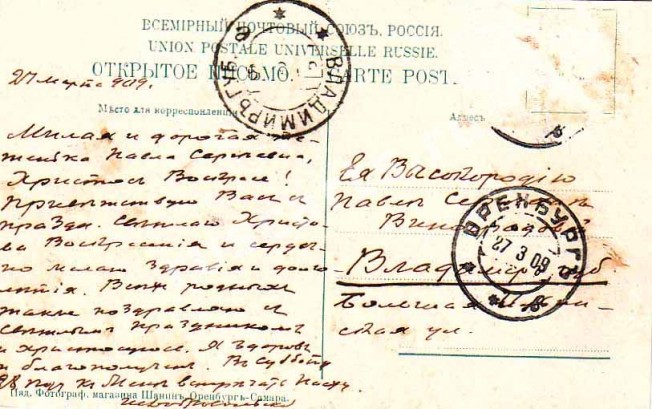 ВСЕМІРНЫЙ ПОЧТОВЫЙ СОЮЗЪ. РОССІЯ.
UNION POSTALE UNIVERSELLE RUSSIE.
ОТКРЫТОЕ ПИСЬМО. CARTE POST
ВЛАДИМИРЪ ГУБ.
27 Марта 909.
Мѣсто для корреспонденціи
Адресъ
Милая и дорогая
Павла Сергѣевна,
Христосъ Воскресе!
Привѣтствую Васъ съ
празд. Свѣтлаго Христо-
ва Воскресенія и сердеч-
но желаю здравія и долго-
лѣтія. Всѣхъ родныхъ
также поздравляю съ
свѣтлымъ праздникомъ
и христосуюсь. Я здоровъ
и благополученъ. Въ Субботу
28
Ея Высокородію
Павлѣ
Виноградовой
ОРЕНБУРГЪ
27 3 09
Большая
ская ул.
Изд. Фотограф. магазина Шанинъ, Оренбургъ-Самара.